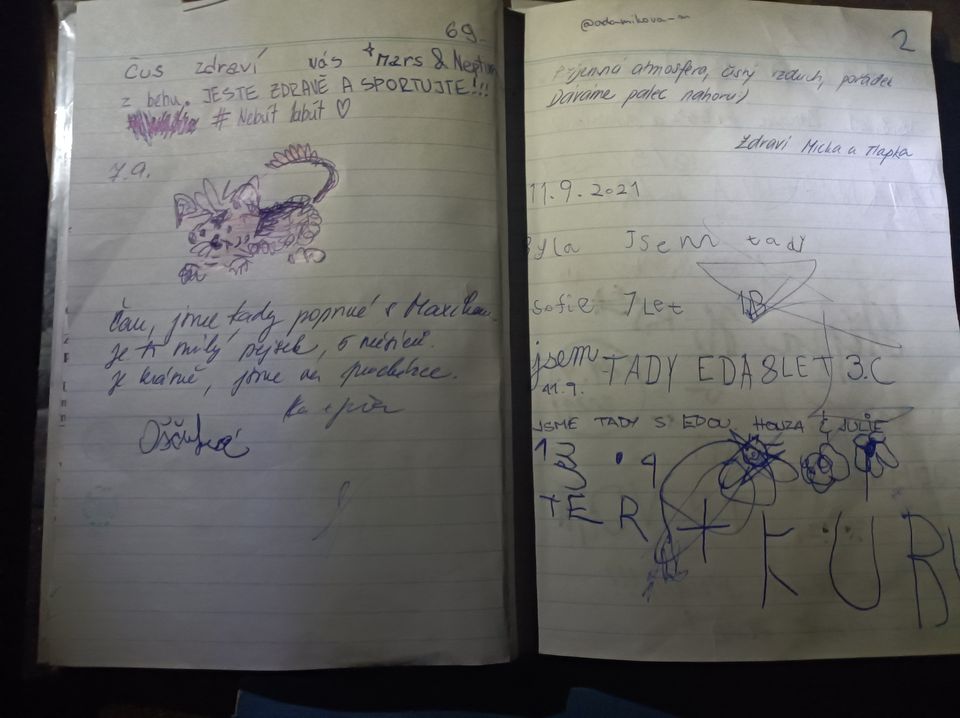 69.
Čus zdraví vás *Mars & Neptun
z běhu. JESTE ZDRAVĚ A SPORTUJTE!!!
# Nebuť labuť ♡
7.9.
Čau, jsme tady poprvé s
je to milý pejsek, 5 měsíců.
je krásně, jsme na procházce.
@adamikova_m
2
Příjemná atmosféra, čistý vzduch, pořádek
Dáváme palec nahoru)
Zdraví Micka a Tlapka
11.9.2021
Byla Jsem tadi
Sofie 7 Let 1B
jsem TADY EDA 8 LET 3.C
11.9.
JSME TADY S EDOU, HONZA & JULIE
TER + KUB